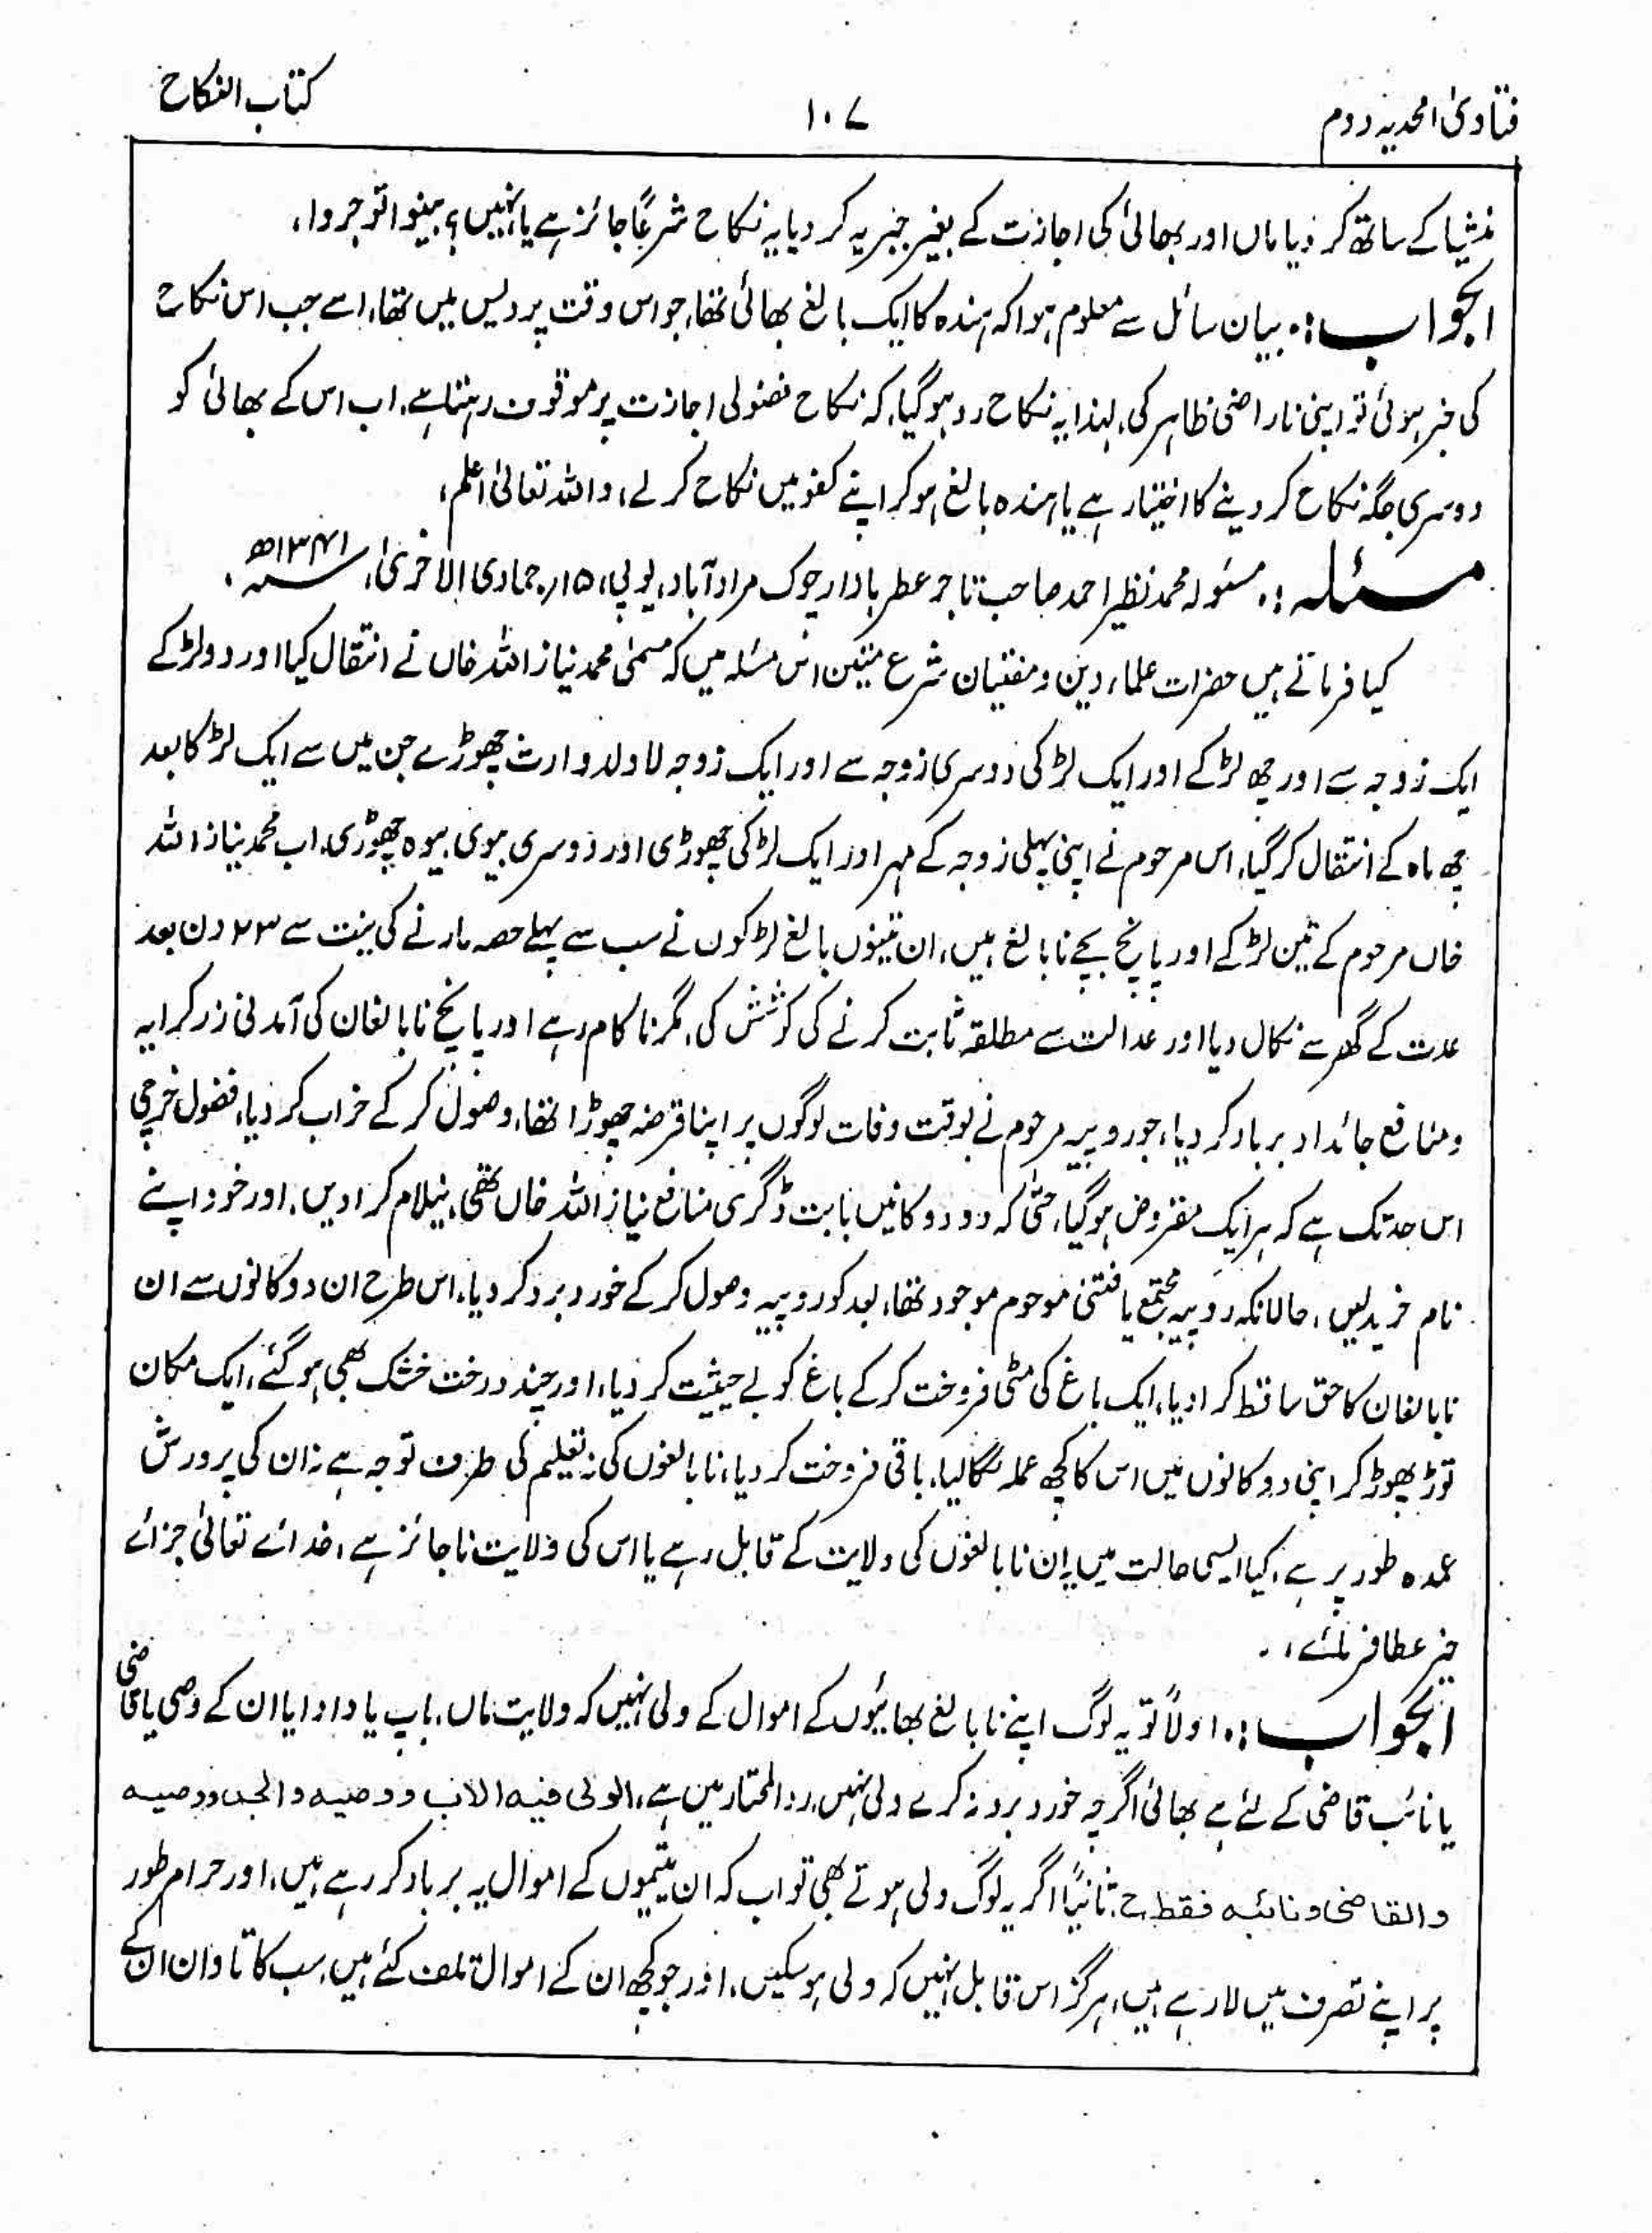 فتاویٰ امجدیہ دوم
۱۰۷
کتاب النکاح
منشیا کے ساتھ کر دیا ماں اور بھائی کی اجازت کے بغیر جبریہ کر دیا یہ نکاح شرعاً جائز ہے یا نہیں؟ بینوا توجروا،
الجواب:۔ بیان سائل سے معلوم ہوا کہ ہندہ کا ایک بالغ بھائی تھا، جو اس وقت پردیس میں تھا، اسے جب اس نکاح
کی خبر ہوئی تو اپنی ناراضی ظاہر کی، لہذا یہ نکاح رد ہو گیا، کہ نکاح فضولی اجازت پر موقوف رہتا ہے، اب اس کے بھائی کو
دوسری جگہ نکاح کر دینے کا اختیار ہے یا ہندہ بالغ ہو کر اپنے کفو میں نکاح کر لے، واللہ تعالیٰ اعلم،
مسئلہ:۔ مسئولہ محمد نظیر احمد صاحب تاجر عطر بازار چوک مرادآباد، یوپی، ۱۵؍ جمادی الاخریٰ، ۱۳۴۱ھ،
کیا فرماتے ہیں حضرات علماء دین و مفتیان شرع متین اس مسئلہ میں کہ مسمیٰ محمد نیاز اللہ خاں نے انتقال کیا اور دو لڑکے
ایک زوجہ سے اور چھ لڑکے اور ایک لڑکی دوسری زوجہ سے اور ایک زوجہ لا ولد وارث چھوڑے جن میں سے ایک لڑکا بعد
چھ ماہ کے انتقال کر گیا، اس مرحوم نے اپنی پہلی زوجہ کے مہر اور ایک لڑکی چھوڑی اور دوسری بیوی بیوہ چھوڑی، اب محمد نیاز اللہ
خاں مرحوم کے تین لڑکے اور پانچ بچے نابالغ ہیں، ان تینوں بالغ لڑکوں نے سب سے پہلے حصہ مارنے کی نیت سے ۲۳ دن بعد
عدت کے گھر سے نکال دیا اور عدالت سے مطلقہ ثابت کرنے کی کوشش کی، مگر ناکام رہے اور پانچ نابالغان کی آمدنی زر کرایہ
ومنافع جائداد برباد کر دیا، جو روپیہ مرحوم نے بوقت وفات لوگوں پر اپنا قرضہ چھوڑا تھا، وصول کر کے خراب کر دیا، فضول خرچی
اس حد تک ہے کہ ہر ایک مقروض ہو گیا، حتٰی کہ دو دوکانیں بابت ڈگری منافع نیاز اللہ خاں تھی، نیلام کرادیں، اور خود اپنے
نام خرید لیں، حالانکہ روپیہ مجتمع یافتنی موحوم موجود تھا، بعد کو روپیہ وصول کر کے خورد برد کر دیا، اس طرح ان دوکانوں سے ان
نابالغان کا حق ساقط کرا دیا، ایک باغ کی مٹی فروخت کر کے باغ کو بے حیثیت کر دیا، اور چند درخت خشک بھی ہو گئے، ایک مکان
توڑ پھوڑ کر اپنی دوکانوں میں اس کا کچھ عملہ لگالیا، باقی فروخت کر دیا، نابالغوں کی نہ تعلیم کی طرف توجہ ہے نہ ان کی پرورش
عمدہ طور پر ہے، کیا ایسی حالت میں یہ ان نابالغوں کی ولایت کے قابل رہے یا اس کی ولایت ناجائز ہے، خدائے تعالیٰ جزائے
خیر عطا فرمائے،۔
الجواب:۔ اولاً تو یہ لوگ اپنے نابالغ بھائیوں کے اموال کے ولی نہیں کہ ولایت ماں، باپ یا دادا یا ان کے وصی یا قاضی
یا نائب قاضی کے لئے ہے بھائی اگرچہ خورد برد نہ کرے ولی نہیں، ردالمحتار میں ہے، الولی فیہ الاب ووصیہ والجد ووصیہ
والقاضی ونائبہ فقط ح، ثانیاً اگر یہ لوگ ولی ہوتے بھی تو اب کہ ان یتیموں کے اموال یہ برباد کر رہے ہیں، اور حرام طور
پر اپنے تصرف میں لا رہے ہیں، ہرگز اس قابل نہیں کہ ولی ہو سکیں، اور جو کچھ ان کے اموال تلف کئے ہیں، سب کا تاوان ان کے